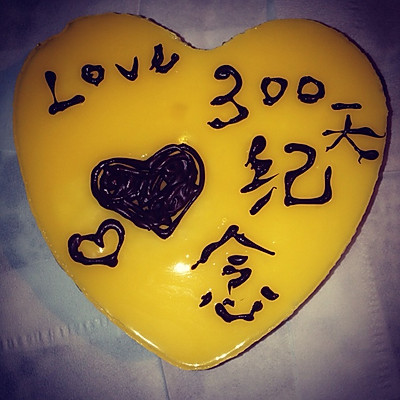 Love
300天
纪
念